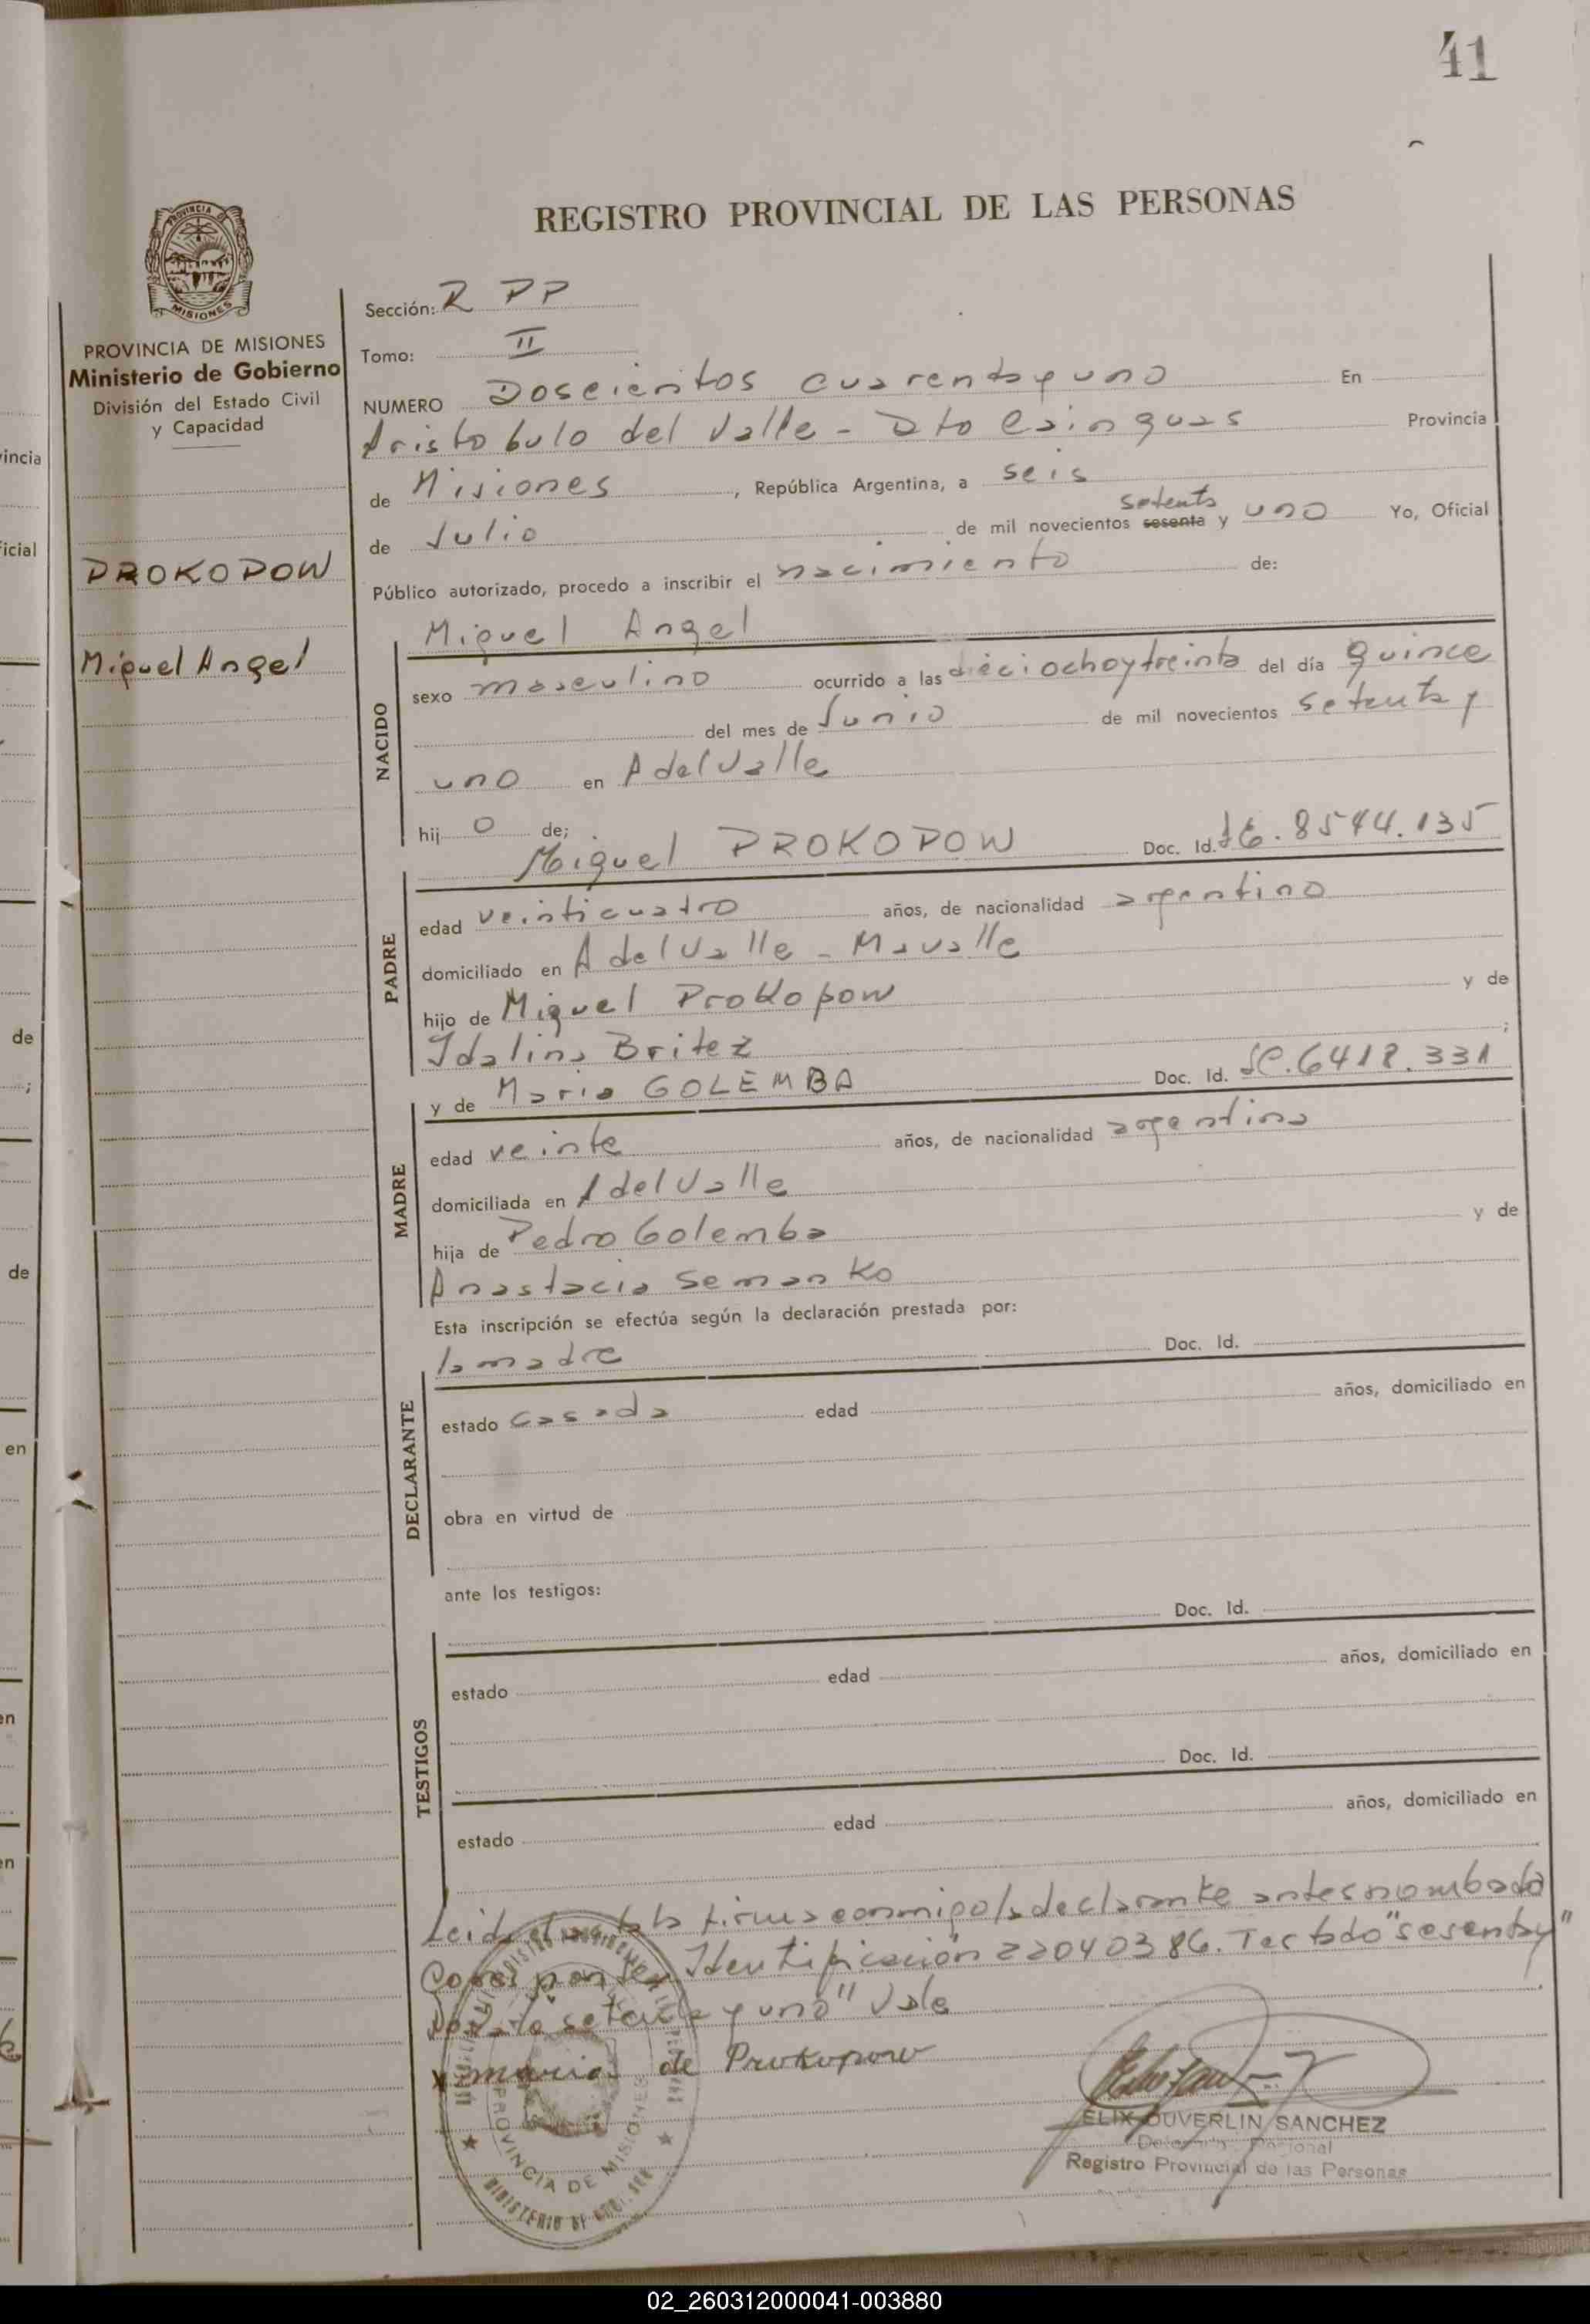 41
REGISTRO PROVINCIAL DE LAS PERSONAS
PROVINCIA DE MISIONES
Ministerio de Gobierno
División del Estado Civil
y Capacidad
PROKOPOW
Miguel Angel
Sección: R PP
Tomo: II
NUMERO Doscientos cuarentayuno En
Aristobulo del Valle - Dto Cainguas Provincia
de Misiones, República Argentina, a seis
de Julio de mil novecientos sesenta setenta y uno Yo, Oficial
Público autorizado, procedo a inscribir el nacimiento de:
Miguel Angel
NACIDO
sexo masculino ocurrido a las dieciochoytreinta del día quince
del mes de Junio de mil novecientos setenta y
uno en A del Valle
hij o de;
Miguel PROKOPOW Doc. Id. 8544.135
PADRE
edad veinticuatro años, de nacionalidad argentino
domiciliado en A del Valle - Mavalle
hijo de Miguel Prokopow y de
Idalina Britez ;
y de Maria GOLEMBA Doc. Id. 6418.331
MADRE
edad veinte años, de nacionalidad argentina
domiciliada en A del Valle
hija de Pedro Golemba y de
Anastacia Semanko
Esta inscripción se efectúa según la declaración prestada por:
la madre Doc. Id.
DECLARANTE
estado casada edad años, domiciliado en
obra en virtud de
ante los testigos:
Doc. Id.
TESTIGOS
estado edad años, domiciliado en
Doc. Id.
estado edad años, domiciliado en
Leida el acta la firma conmigo la declarante antes nombada
Identificación 22040386. Testado "sesentay"
setenta y uno" Vale
x maria de Prokopow
PROVINCIA DE MISIONES
ELIX DUVERLIN SANCHEZ
Registro Provincial de las Personas
02_260312000041-003880